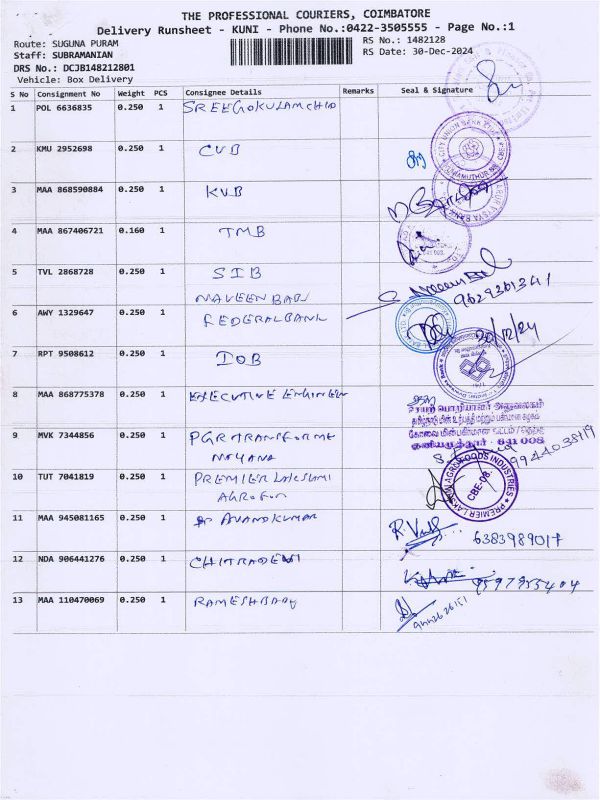 THE PROFESSIONAL COURIERS, COIMBATORE
Delivery Runsheet - KUNI - Phone No.:0422-3505555 - Page No.:1
Route: SUGUNA PURAM
Staff: SUBRAMANIAN
DRS No.: DCJB148212801
Vehicle: Box Delivery
RS No.: 1482128
RS Date: 30-Dec-2024
S No Consignment No Weight PCS Consignee Details Remarks Seal & Signature
1 POL 6636835 0.250 1 SREEGOKULAM CHID
2 KMU 2952698 0.250 1 CUB
CITY UNION BANK
3 MAA 868590884 0.250 1 KVB
4 MAA 867406721 0.160 1 TMB
5 TVL 2868728 0.250 1 SIB
NAVEEN BABU
9629361341
6 AWY 1329647 0.250 1 FEDERAL BANK
30/12/24
7 RPT 9508612 0.250 1 IOB
8 MAA 868775378 0.250 1 EXECUTIVE ENGINEER
செயற் பொறியாளர் அலுவலகம்
குனியமுத்தூர் - 641 008
9 MVK 7344856 0.250 1 PGR TRANSFORME
NAYANA
9944038119
10 TUT 7041819 0.250 1 PREMIER LAKSHMI
AGROFOO
PREMIER LAKSHMI AGRO FOODS INDUSTRIES
CBE-08.
11 MAA 945081165 0.250 1 ANANDKUMAR
6383989017
12 NDA 906441276 0.250 1 CHITRADEVI
9597955404
13 MAA 110470069 0.250 1 RAMESHBABU